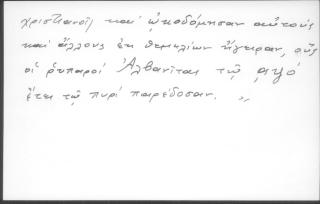 χριστιανοῖς καὶ ᾠκοδόμησαν αὐτοὺς
καὶ ἄλλους ἐκ θεμελίων ἤγειραν, οὓς
οἱ ῥυπαροὶ Ἀλβανῖται τῷ ͵αψό
ἔτει τῷ πυρὶ παρέδοσαν. »